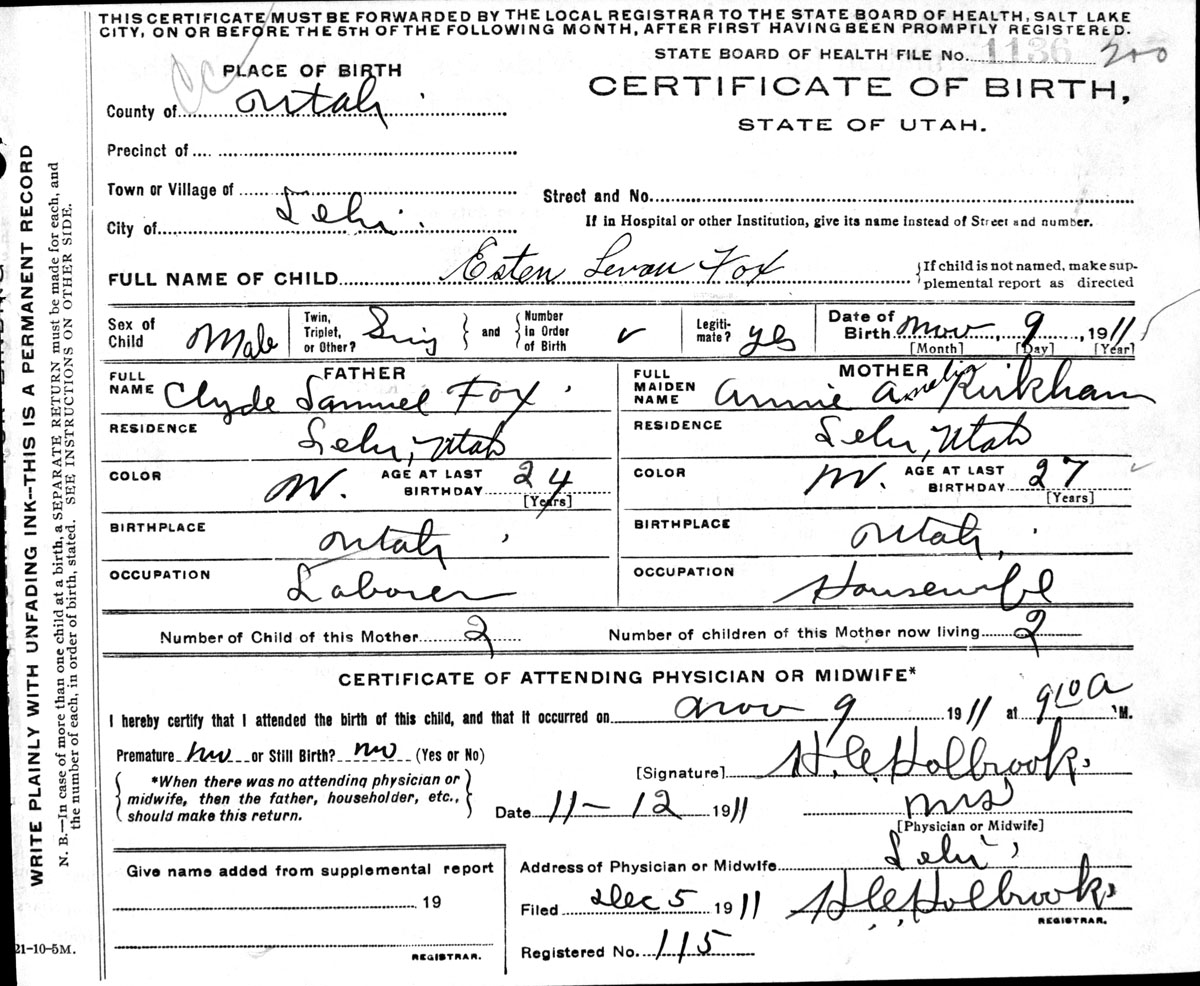 THIS CERTIFICATE MUST BE FORWARDED BY THE LOCAL REGISTRAR TO THE STATE BOARD OF HEALTH, SALT LAKE
CITY, ON OR BEFORE THE 5TH OF THE FOLLOWING MONTH, AFTER FIRST HAVING BEEN PROMPTLY REGISTERED.
STATE BOARD OF HEALTH FILE No. 1136 200
PLACE OF BIRTH
CERTIFICATE OF BIRTH,
County of Utah
STATE OF UTAH.
Precinct of
Town or Village of
Street and No.
City of Lehi
If in Hospital or other Institution, give its name Instead of Street and number.
FULL NAME OF CHILD Esten Levan Fox
{If child is not named, make sup-
plemental report as directed
Sex of Child Male
Twin, Triplet, or Other? Sing
and
Number in Order of Birth
Legiti-mate? yes
Date of Birth Nov 9, 1911
[Month] [Day] [Year]
FATHER
FULL NAME Clyde Samuel Fox
RESIDENCE Lehi, Utah
COLOR W. AGE AT LAST BIRTHDAY 24
[Years]
BIRTHPLACE Utah
OCCUPATION Laborer
MOTHER
FULL MAIDEN NAME Annie Amelia Kirkham
RESIDENCE Lehi, Utah
COLOR W. AGE AT LAST BIRTHDAY 27
[Years]
BIRTHPLACE Utah,
OCCUPATION Housewife
Number of Child of this Mother 2
Number of children of this Mother now living 2
CERTIFICATE OF ATTENDING PHYSICIAN OR MIDWIFE*
I hereby certify that I attended the birth of this child, and that it occurred on Nov 9 1911 at 9 10 A M.
Premature no or Still Birth? no (Yes or No)
*When there was no attending physician or
midwife, then the father, householder, etc.,
should make this return.
[Signature] H. C. Holbrook
Date 11-12 1911
[Physician or Midwife]
Address of Physician or Midwife Lehi
Filed Dec 5 1911 H C Holbrook
REGISTRAR.
Registered No. 115
Give name added from supplemental report
19
REGISTRAR.
WRITE PLAINLY WITH UNFADING INK—THIS IS A PERMANENT RECORD
N. B.—In case of more than one child at a birth, a SEPARATE RETURN must be made for each, and
the number of each, in order of birth, stated. SEE INSTRUCTIONS ON OTHER SIDE.
21-10-5M.